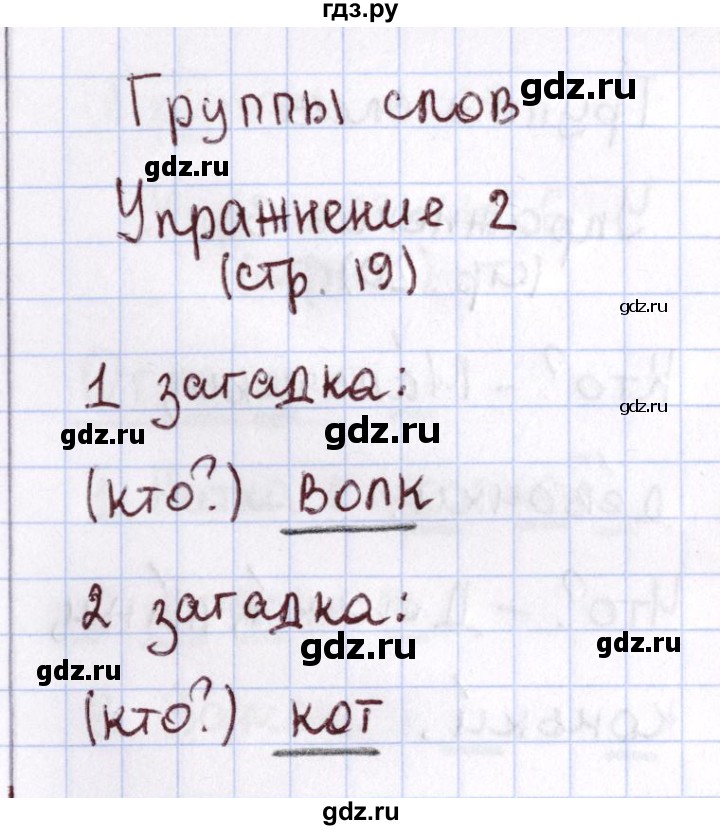 гдз.ру
Группы слов
gdz.ru
gdz.ru
Упражнение 2
(стр. 19)
gdz.ru
1 загадка:
gdz.ru
gdz.ru
gdz.ru
(кто?) волк
2 загадка:
gdz.ru
gdz.ru
gdz.ru
(кто?) кот
gdz.ru